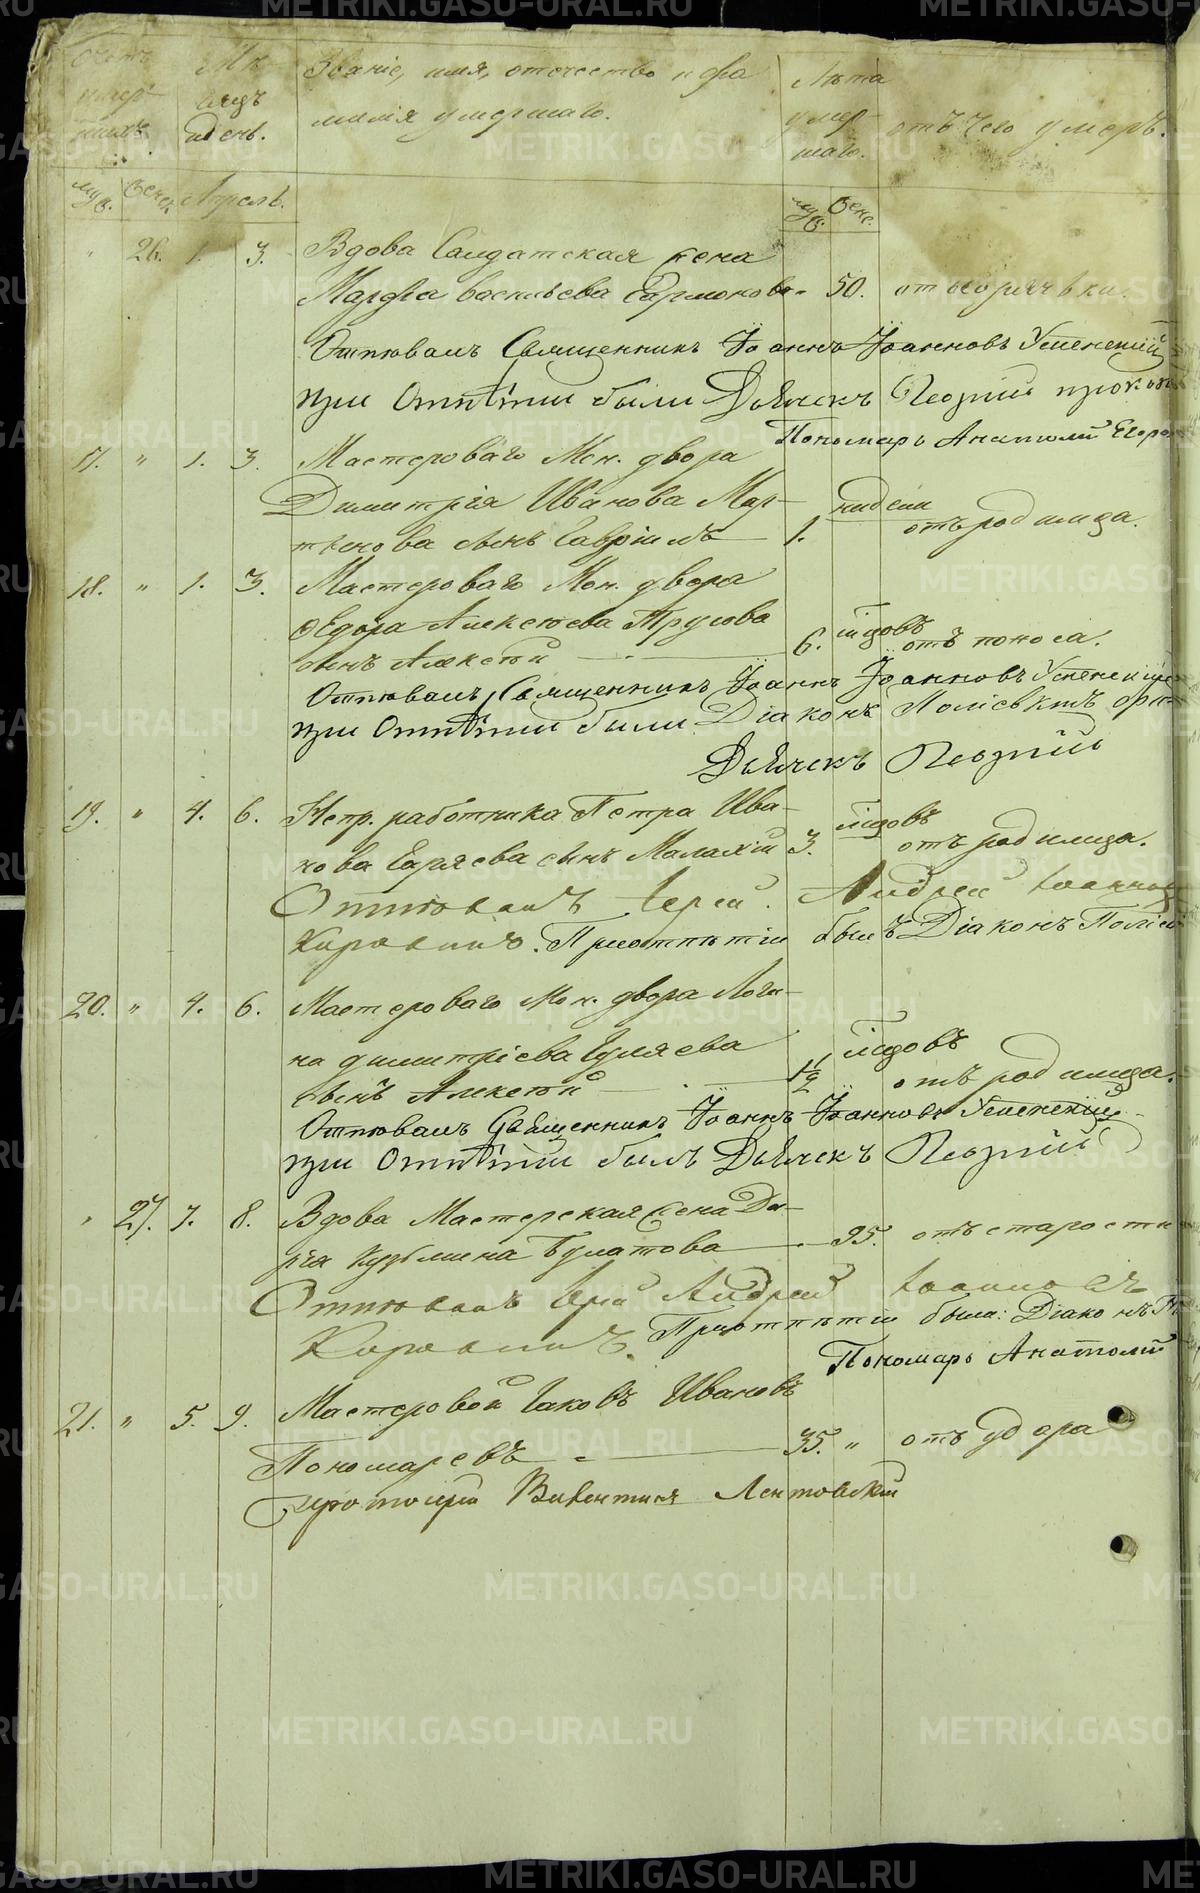 Счетъ умер-шихъ.
Мѣсяцъ и день.
Званіе, имя, отчество и фа-
милія умершаго.
Лѣта умер-шаго.
отъ чего умеръ.
муж. женс. Апрель.
муж. женс.
" 26. 1. 3. Вдова Салдатская жена
Марфа Васильева 50. отъ горячьки.
Отпѣвалъ Священникъ Іоаннъ Іоанновъ Успенскій
при Отпѣтіи были Дьячекъ Георгій
Пономарь Анатолій
17. " 1. 3. Мастероваго Мон. двора
Димитрія Иванова Мар-
тынова сынъ Гавріилъ 1. нидели отъ родимца.
18. " 1. 3. Мастероваго Мон. двора
Ѳедора Алексѣева Трусова
сынъ Алексѣй 6. годовъ отъ поноса.
Отпѣвалъ Священникъ Іоаннъ Іоанновъ
при Отпѣтіи были Діаконъ
Дьячекъ Георгій
19. " 4. 6. Непр. работника Петра Ива-
нова сынъ Малахій 3. годовъ отъ родимца.
Отпѣвалъ Іерей Андрей
Коровинъ. При отпѣтіи былъ Діаконъ
20. " 4. 6. Мастероваго Мон. двора Логи-
на Димитріева Гуляева
сынъ Алексѣй 1 1/2 годовъ отъ родимца.
Отпѣвалъ Священникъ Іоаннъ Іоанновъ Успенскій
при Отпѣтіи былъ Дьячекъ Георгій
" 27. 7. 8. Вдова Мастерская жена Да-
рія Кузьмина Булатова 95. отъ старости
Отпѣвалъ Іерей Андрей Іоанновъ
Коровинъ. При отпѣтіи были: Діаконъ
Пономарь Анатолій
21. " 5. 9. Мастеровой Іаковъ Ивановъ
Пономаревъ 35. " отъ удара
Протоіерей Викентій Лентовскій
METRIKI.GASO-URAL.RU